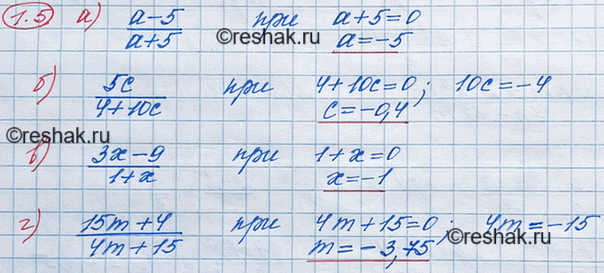 1.5 а) a-5/a+5 при a+5=0
a=-5
©reshak.ru
©reshak.ru
б) 5c/4+10c при 4+10c=0; 10c=-4
c=-0,4
©reshak.ru
в) 3x-9/1+x при 1+x=0
x=-1
©reshak.ru
г) 15m+4/4m+15 при 4m+15=0; 4m=-15
m=-3,75